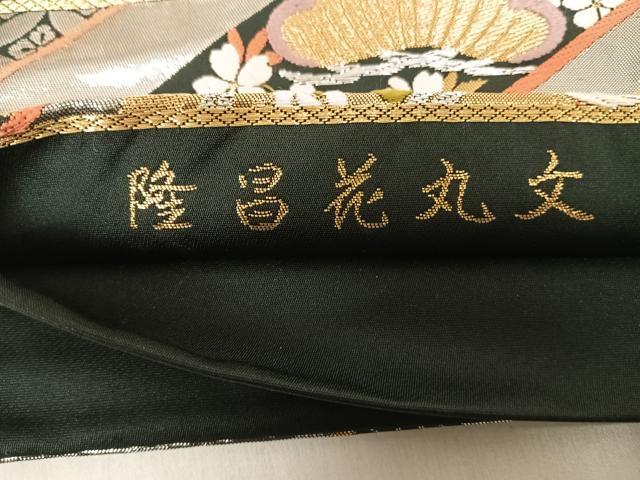 隆昌花丸文